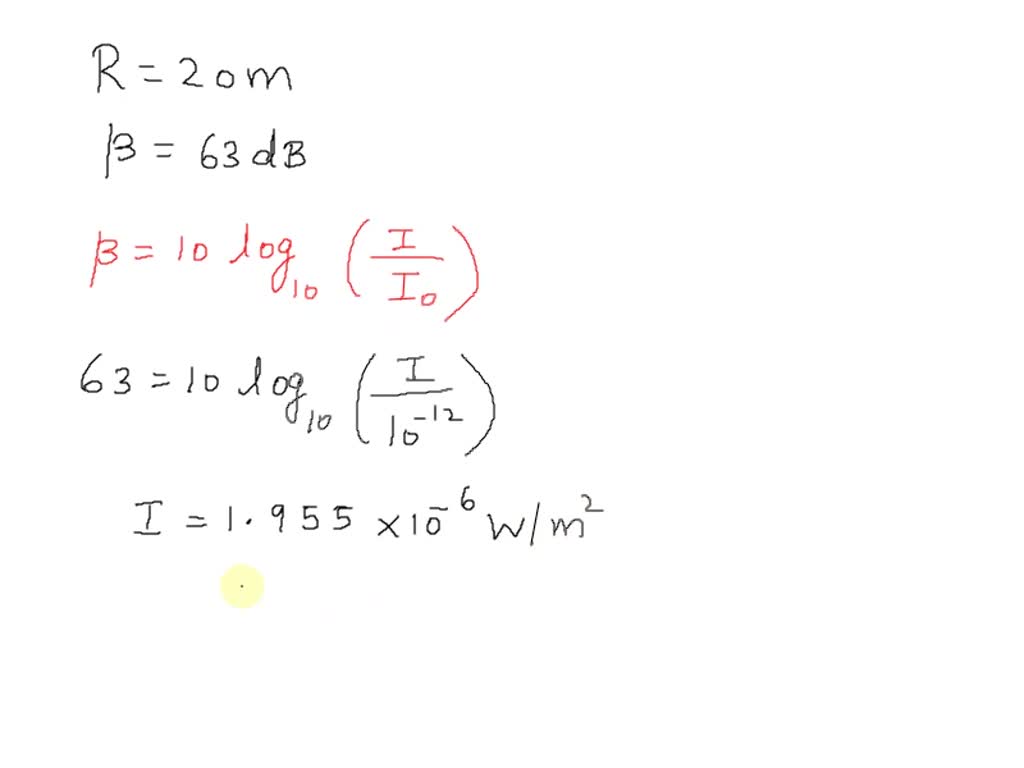 R = 20m
β = 63 dB
β = 10 log₁₀ (I/I₀)
63 = 10 log₁₀ (I/10⁻¹²)
I = 1.955 × 10⁻⁶ W/m²